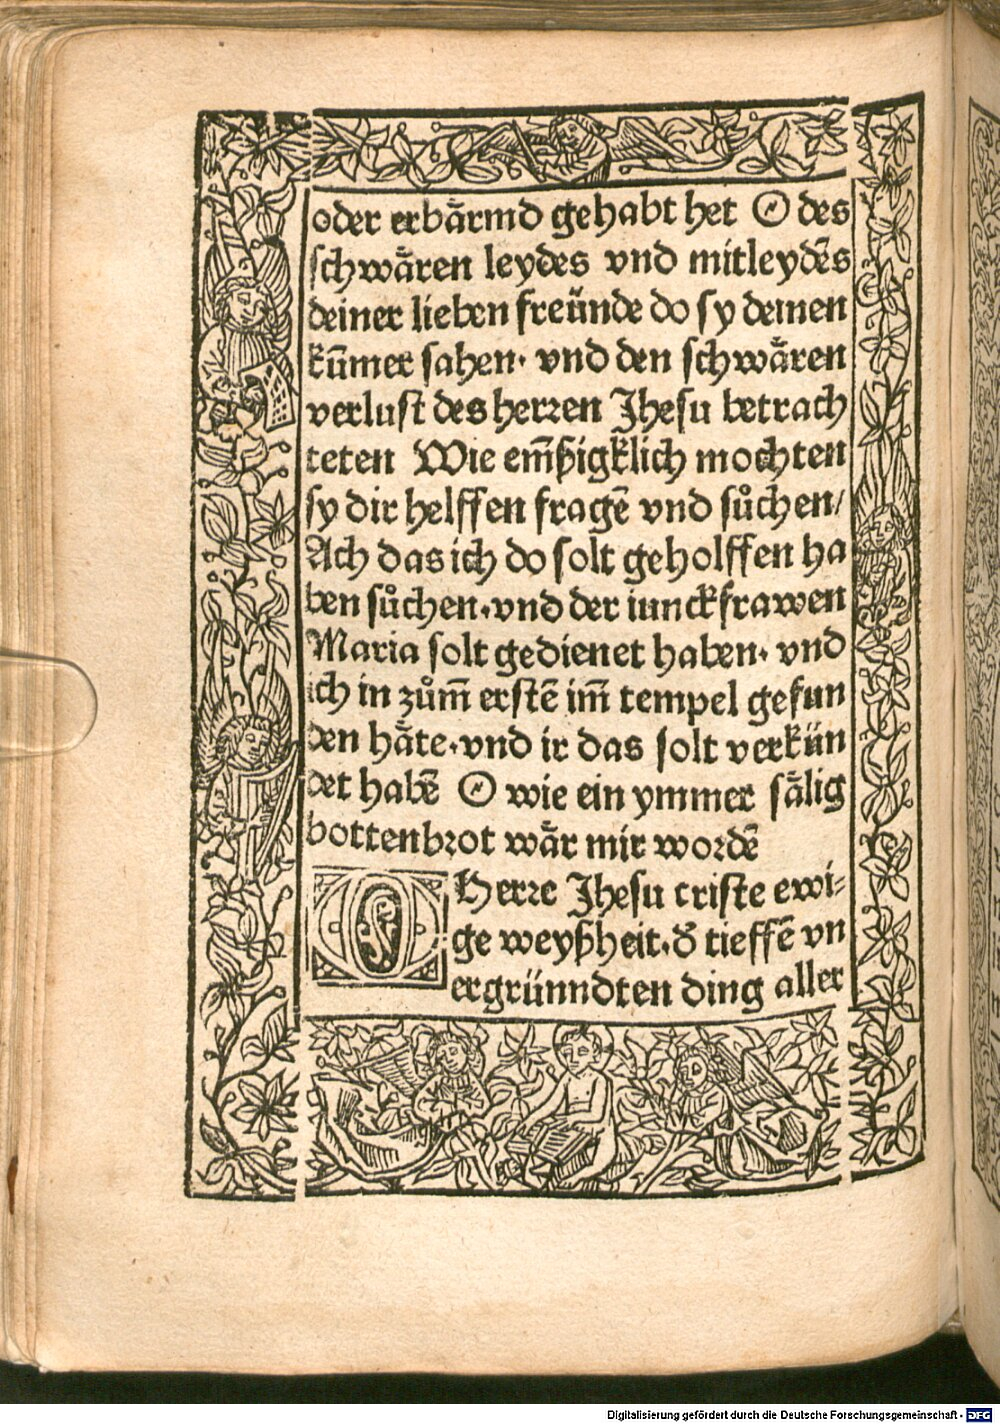 oder erbårmd gehabt het O des
schwåren leydes vnd mitleydēs
deiner lieben freünde do sy deinen
kūmer sahen· vnd den schwåren
verlust des herren Jhesu betrach
teten Wie em̄ßigklich mochten
sy dir helffen fragē vnd sůchen/
Ach das ich do solt geholffen ha
ben sůchen·vnd der iunckfrawen
Maria solt gedienet haben· vnd
ich in zům̄ erstē im̄ tempel gefun
den håte·vnd ir das solt verkün
det habē O wie ein ymmer sålig
bottenbrot wår mir wordē
O Herre Jhesu criste ewi⸗
ge weyßheit·d̕ tieffē vn
ergrünndten ding aller
Digitalisierung gefördert durch die Deutsche Forschungsgemeinschaft - DFG